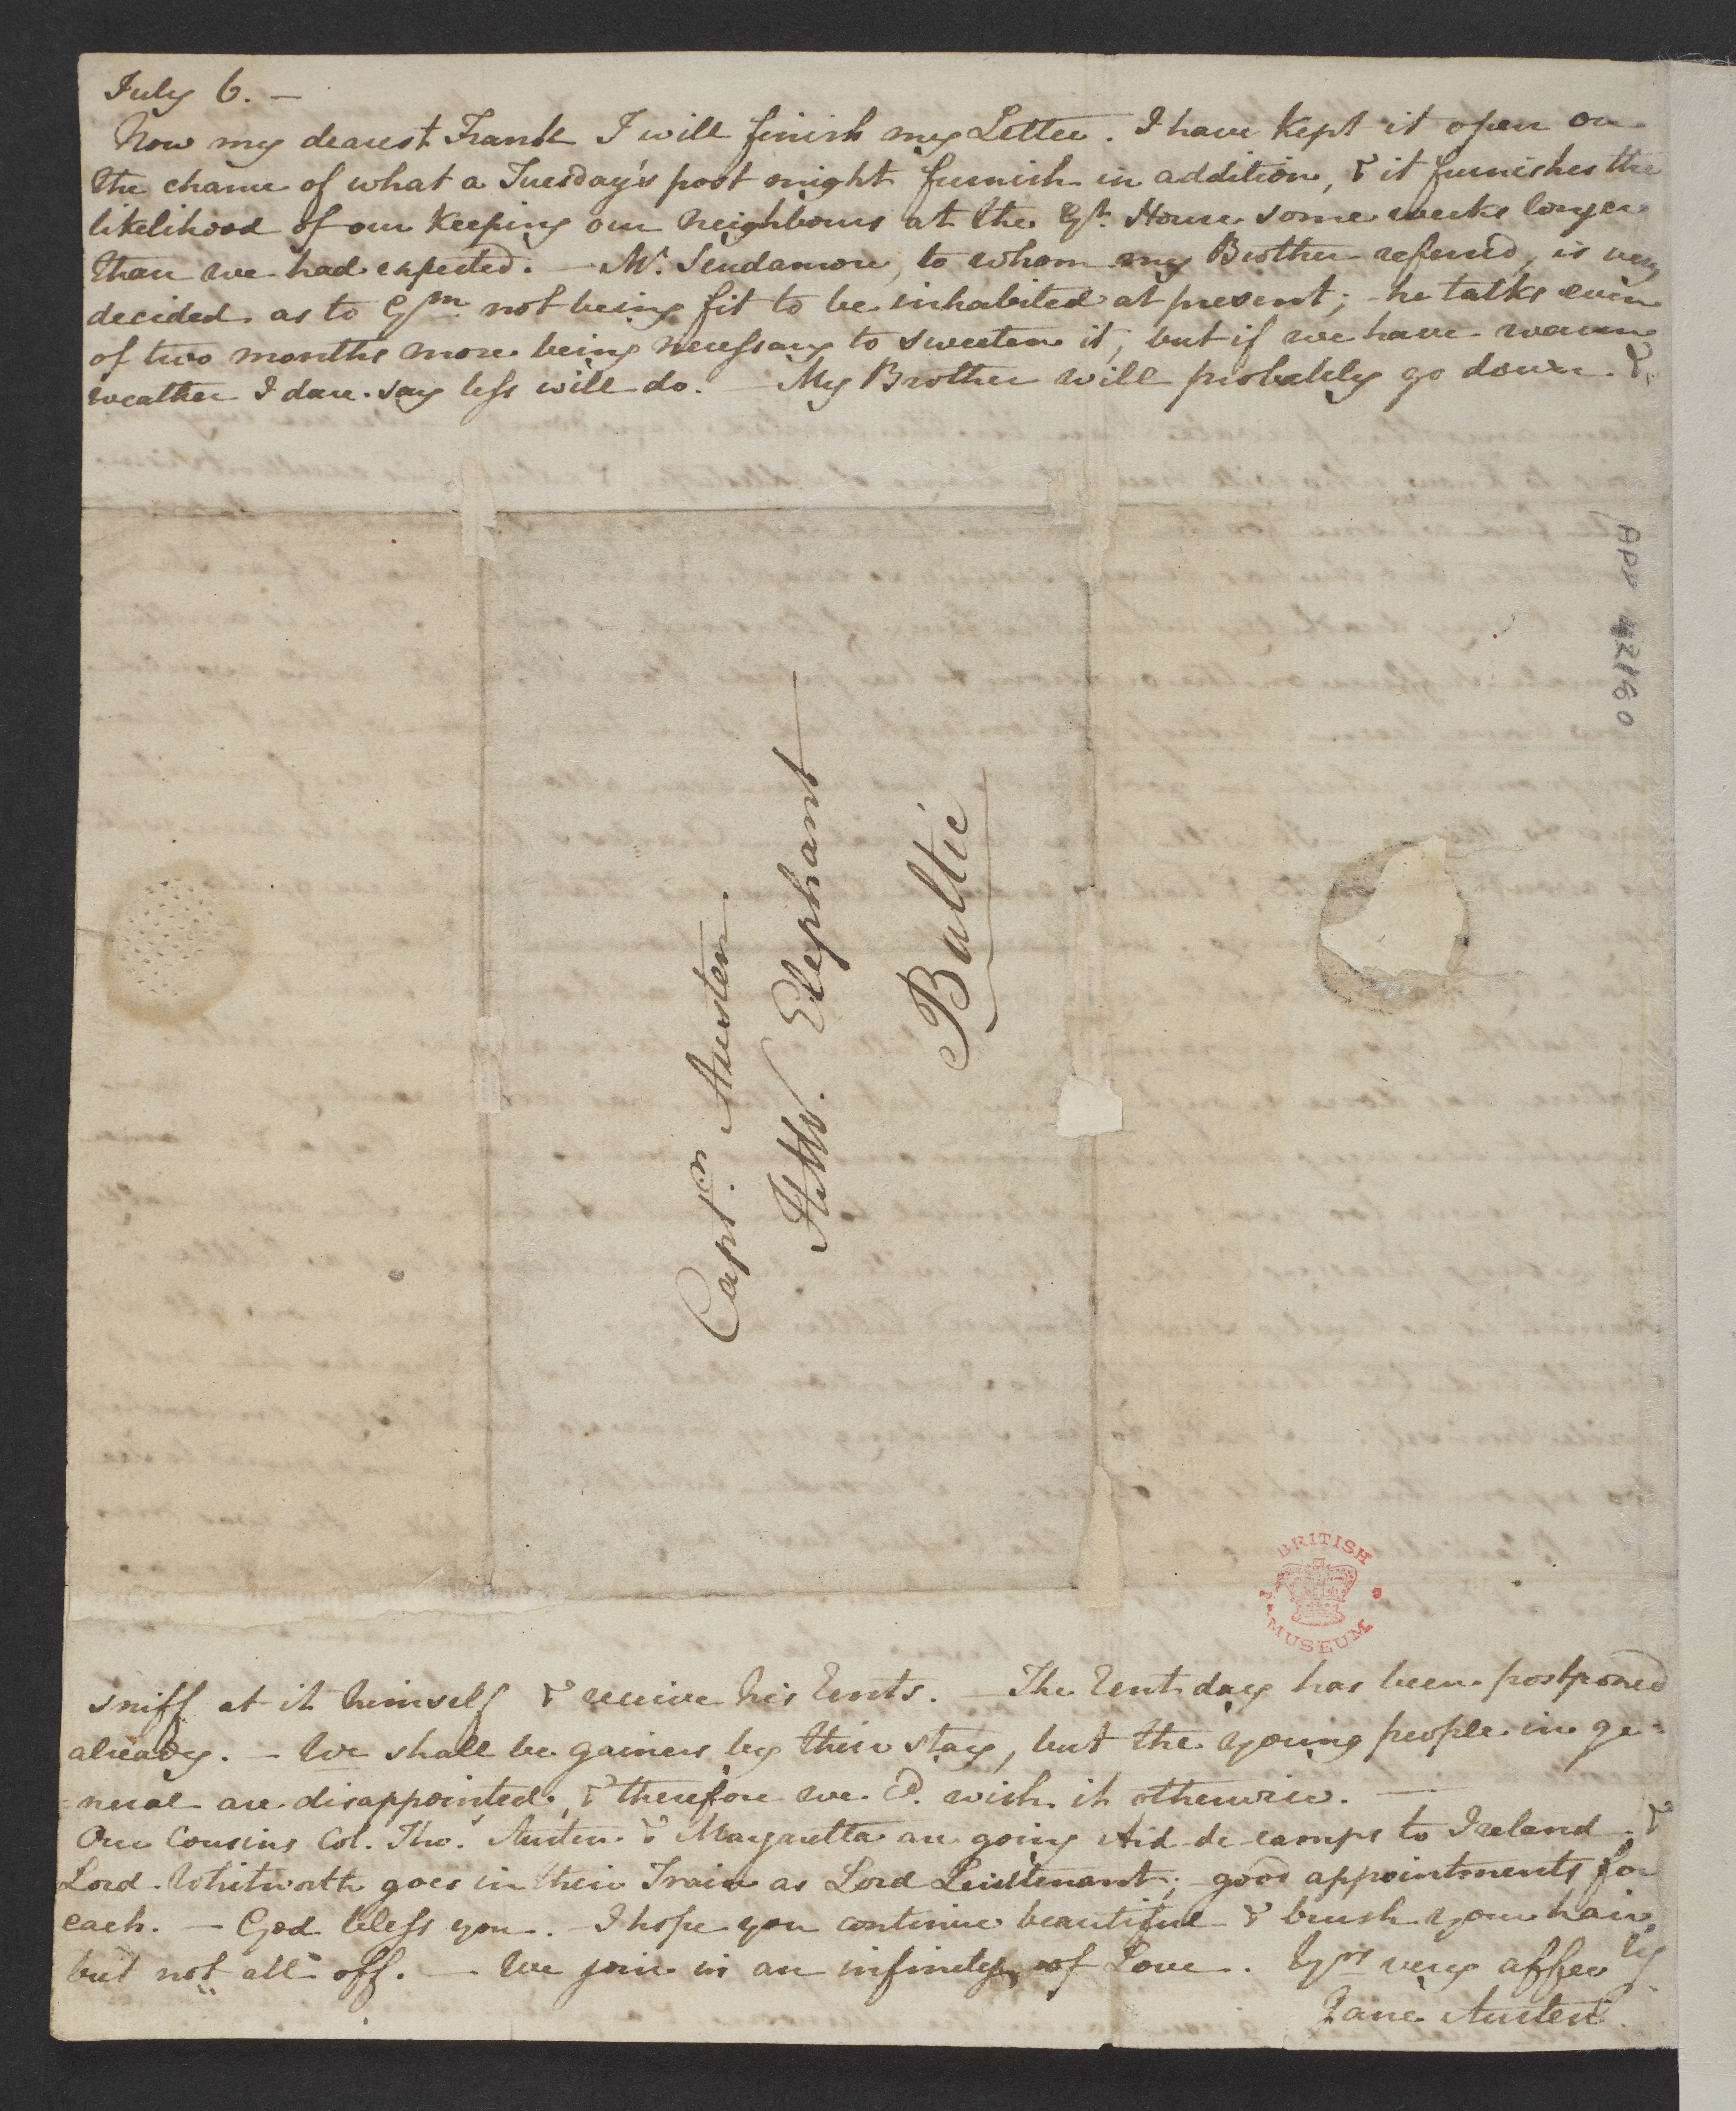 July 6. —
Now my dearest Frank I will finish my Letter. I have kept it open on
the chance of what a Tuesday's post might furnish in addition, & it furnishes the
likelihood of our keeping our neighbours at the Gt. House some weeks longer
than we had expected. — Mr. Scudamore, to whom my Brother referred, is very
decided as to Gm. not being fit to be inhabited at present; — he talks even
of two months more being necessary to sweeten it, but if we have warm
weather I dare say less will do. — My Brother will probably go down &
Captn. Austen
HMS. Elephant
Baltic
sniff at it himself & receive his Rents. — The Rent-day has been postponed
already. — We shall be gainers by their stay, but the young people in ge=
=neral are disappointed, & therefore we cd. wish it otherwise. —
Our Cousins Col. Thos. Austen & Margaretta are going Aid-de-camps to Ireland &
Lord Whitworth goes in their Train as Lord Lieutenant; — good appointments for
each. — God bless you. — I hope you continue beautiful & brush your hair,
but not all off. — We join in an infinity of Love. Yrs. very affecly
Jane Austen
ADD 42180
BRITISH
MUSEUM